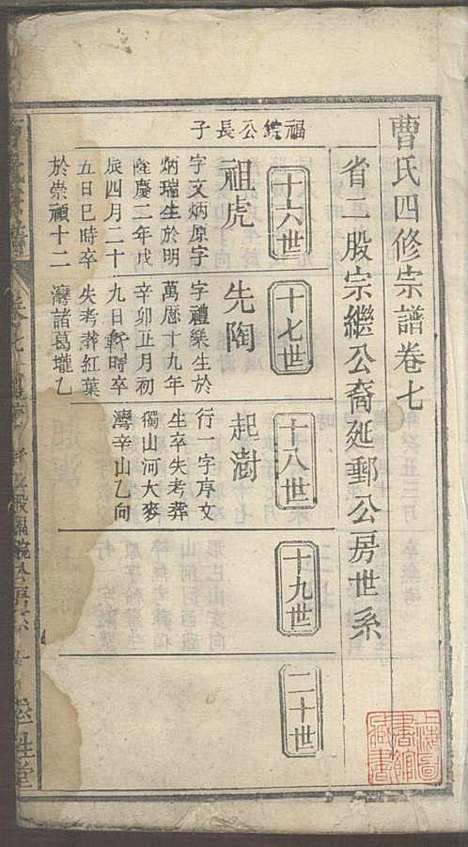 曹氏四修宗譜卷七
省二股宗繼公裔延郵公房世系
福鏡公長子
十六世
祖虎
字文炳原字
炳瑞生於明
隆慶二年戊
辰四月二十
五日巳時卒
於崇禎十二
十七世
先陶
字禮樂生於
萬曆十九年
辛卯五月初
九日 時卒
失考葬紅葉
灣諸葛壠乙
十八世
起澍
行一字序文
生卒失考葬
獨山河大麥
灣辛山乙向
十九世
二十世
上海圖
書館
藏書